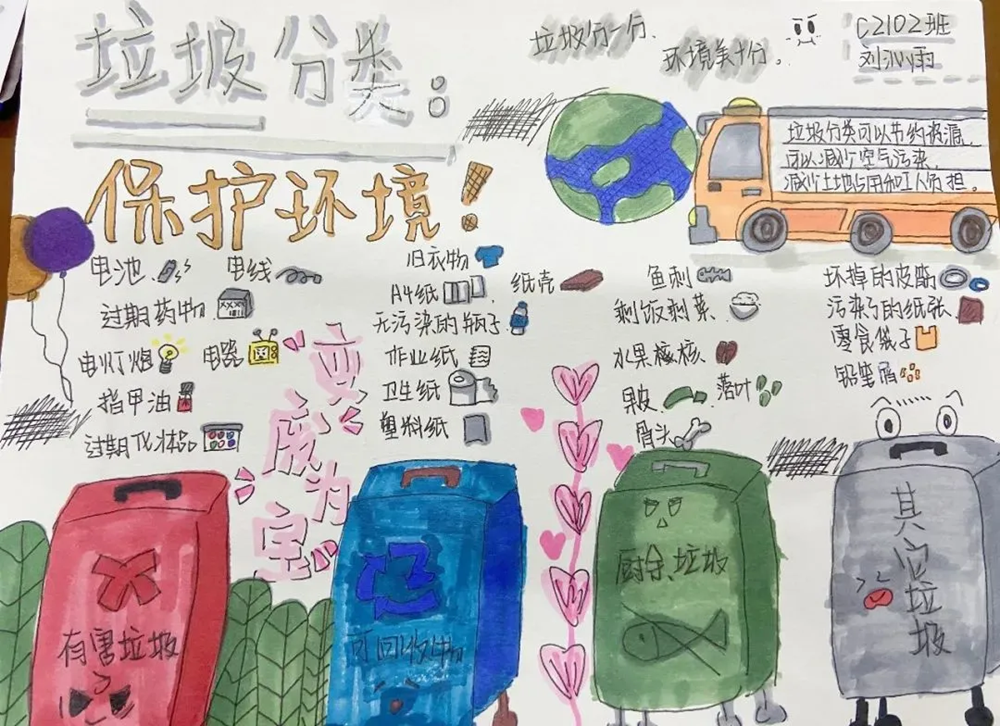 垃圾分类:
垃圾分一分.
环境美十分。
C2102班
垃圾分类可以节约资源.
可以减少空气污染.
减少土地占用和工人负担。
保护环境!
电池.
电线
过期药物.
电灯炮
电器
指甲油
过期化妆品
旧衣物
A4纸
纸壳
无污染的瓶子
作业纸
卫生纸
塑料纸
鱼刺
剩饭剩菜.
水果核核
果皮
落叶
骨头
坏掉的皮筋
污染了的纸张
零食袋子
铅笔屑
变废为宝
有害垃圾
可回收物
厨余垃圾
其它垃圾